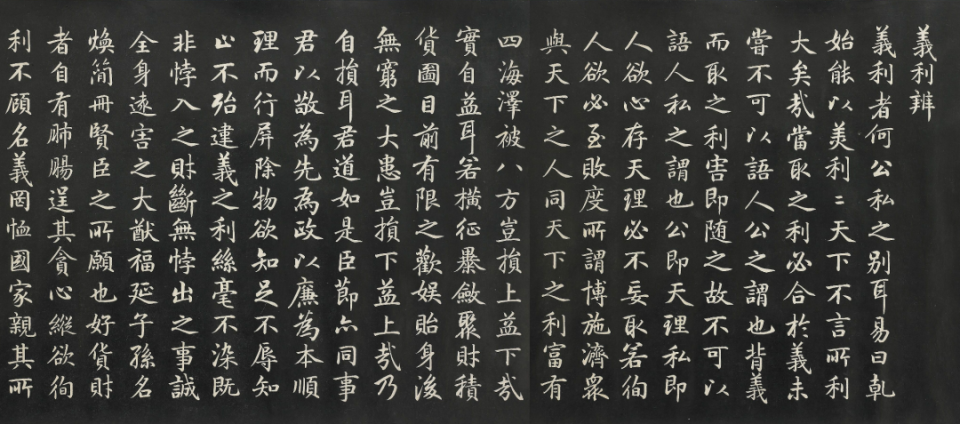 義利辨
義利者何公私之别耳易曰乹
始能以美利二天下不言所利
大矣㢤當取之利必合於義未
嘗不可以語人公之謂也背義
而取之利害即随之故不可以
語人私之謂也公即天理私即
人欲心存天理必不妄取若徇
人欲必至敗度所謂博施濟衆
與天下之人同天下之利富有
四海澤被八方豈損上益下㢤
實自益耳若横征暴斂聚財積
貨圖目前有限之歡娱貽身後
無窮之大患豈損下益上㢤乃
自損耳君道如是臣莭亦同事
君以敬為先為政以廉為本順
理而行屏除物欲知足不辱知
止不殆違義之利絲毫不染既
非悖入之財斷無悖出之事誠
全身逺害之大猷福延子孫名
煥簡冊賢臣之所願也好貨財
者自有肺腸逞其貪心縱欲徇
利不顧名義罔恤國家親其所